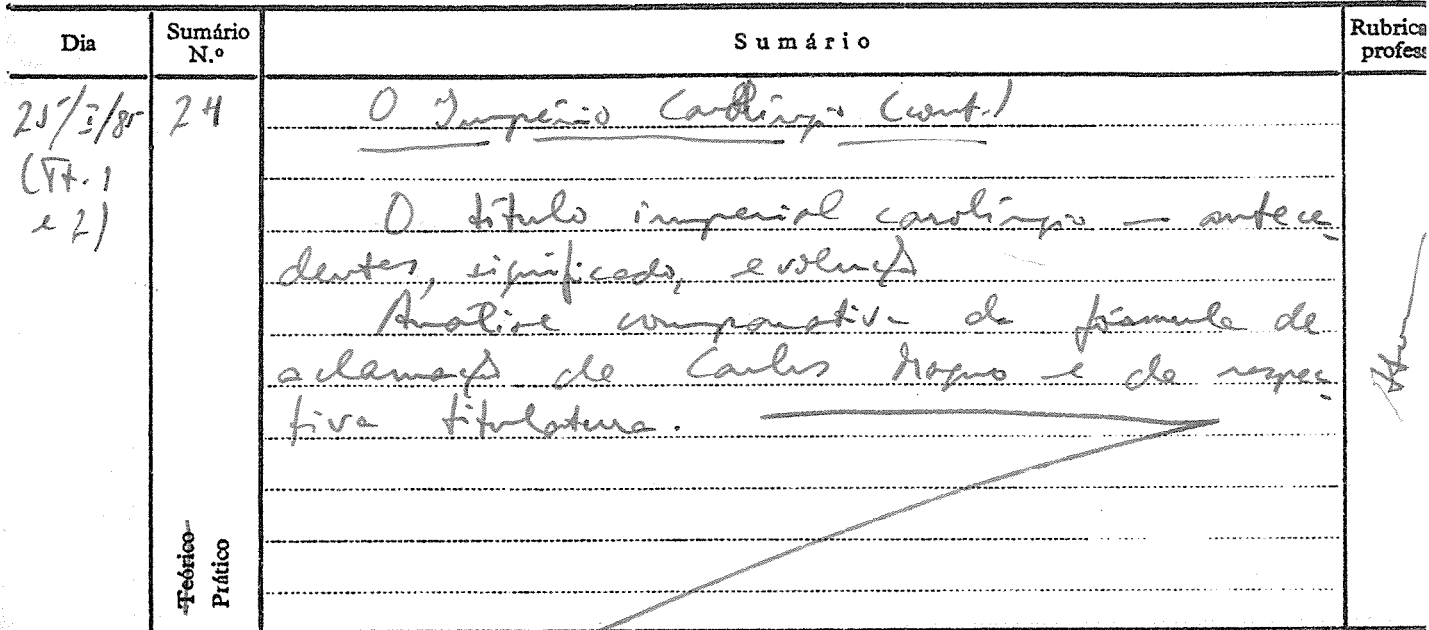 Dia
Sumário N.º
Sumário
Rubrica
profess
25/I/85
24
O Império Carolíngio (cont.)
e 2)
O título imperial carolíngio — antece-
dentes, significado, evolução
Análise comparativa da fórmula de
aclamação de Carlos Magno e da respec-
tiva titulatura.
Teórico
Prático